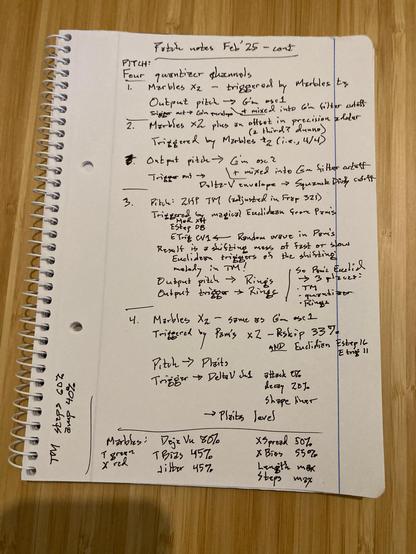 Patch notes Feb '25 - cont
PITCH:
Four quantizer channels
1. Marbles X2 - triggered by Marbles t3
Output pitch → Gm osc1
Trigger out → Gm envelope + mixed into Gm filter cutoff
2. Marbles X2 plus an offset in precision adder
(a third? dunno)
Triggered by Marbles t2 (i.e., 4/4)
Output pitch → Gm osc2
+ mixed into Gm filter cutoff
Trigger out →
Delta-V envelope → Squawk Dirty cutoff
3. Pitch: 2HP TM (adjusted in Frap 321)
Triggered by magical Euclidean from Pam's
Mod X4
EStep 08
ETrig CV1 ← Random wave in Pam's
Result is a shifting mess of fast or slow
Euclidean triggers of the shifting
melody in TM!
Output pitch → Rings
Output trigger → Rings
So Pam's Euclid
→ 3 places:
· TM
· quantizer
· Rings
4. Marbles X2 - same as Gm osc1
Triggered by Pam's X2 - Rskip 33%
AND Euclidean Estep 16
Etrig 11
Pitch → Plaits
Trigger → DeltaV ch1 attack 0%
decay 20%
shape liner
→ Plaits level
Marbles: Deja Vu 80% X Spread 50%
T green T Bias 45% X Bias 55%
X red Jitter 45% Length max
Steps max